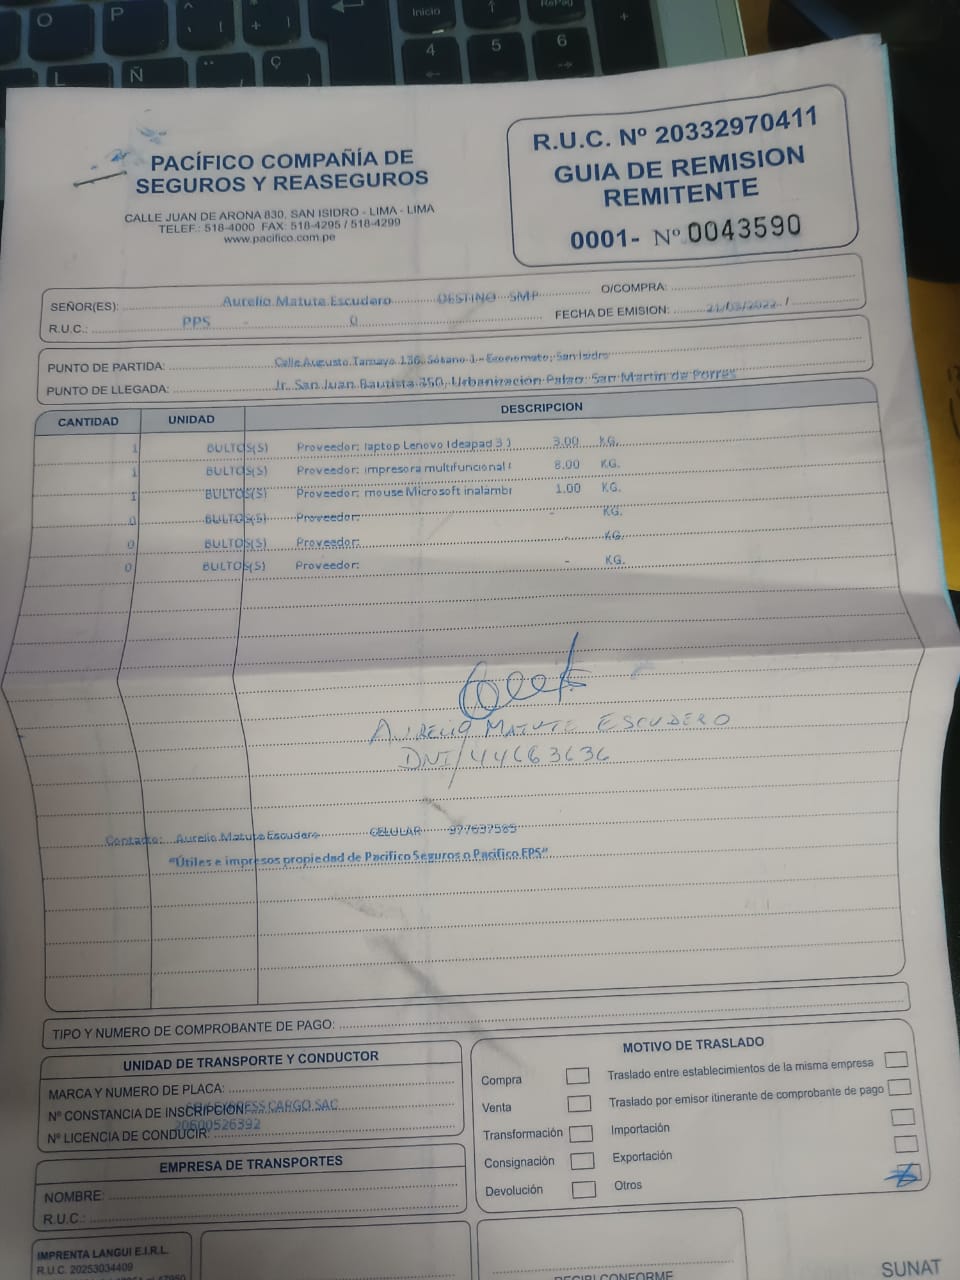 O P Inicio RePag
L Ñ Ç 4 5 6
PACÍFICO COMPAÑÍA DE
SEGUROS Y REASEGUROS
CALLE JUAN DE ARONA 830, SAN ISIDRO - LIMA - LIMA
TELEF.: 518-4000 FAX: 518-4295 / 518-4299
www.pacifico.com.pe
R.U.C. Nº 20332970411
GUIA DE REMISION
REMITENTE
0001- Nº 0043590
SEÑOR(ES): Aurelio Matute Escudero DESTINO SMP O/COMPRA:
R.U.C.: PPS - 0 FECHA DE EMISION: 21/03/2022 /
PUNTO DE PARTIDA: Calle Augusto Tamayo 136, Sótano 1 - Economato, San Isidro
PUNTO DE LLEGADA: Jr. San Juan Bautista 350, Urbanización Palao. San Martin de Porres
CANTIDAD UNIDAD DESCRIPCION
1 BULTOS(S) Proveedor: laptop Lenovo Ideapad 3 3.00 KG.
1 BULTOS(S) Proveedor: impresora multifuncional 8.00 KG.
1 BULTOS(S) Proveedor: mouse Microsoft inalambr 1.00 KG.
0 BULTOS(S) Proveedor: - KG.
0 BULTOS(S) Proveedor: - KG.
0 BULTOS(S) Proveedor: - KG.
AURELIO MATUTE ESCUDERO
DNI/44663636
Contacto: Aurelio Matute Escudero CELULAR 977637585
"Útiles e impresos propiedad de Pacifico Seguros o Pacifico EPS"
TIPO Y NUMERO DE COMPROBANTE DE PAGO:
UNIDAD DE TRANSPORTE Y CONDUCTOR
MARCA Y NUMERO DE PLACA:
Nº CONSTANCIA DE INSCRIPCION CARGO SAC
Nº LICENCIA DE CONDUCIR: 20600526392
EMPRESA DE TRANSPORTES
NOMBRE:
R.U.C.:
MOTIVO DE TRASLADO
Compra Traslado entre establecimientos de la misma empresa
Venta Traslado por emisor itinerante de comprobante de pago
Transformación Importación
Consignación Exportación
Devolución Otros
IMPRENTA LANGUI E.I.R.L.
R.U.C. 20253034409
RECIBI CONFORME
SUNAT